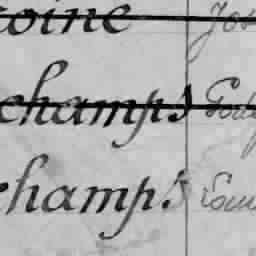 oine Jos
champs
champs Lou